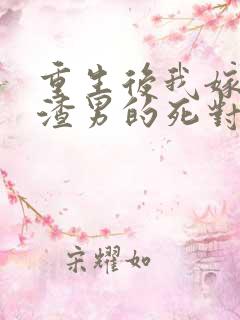 重生後我嫁
渣男的死對
宋耀如